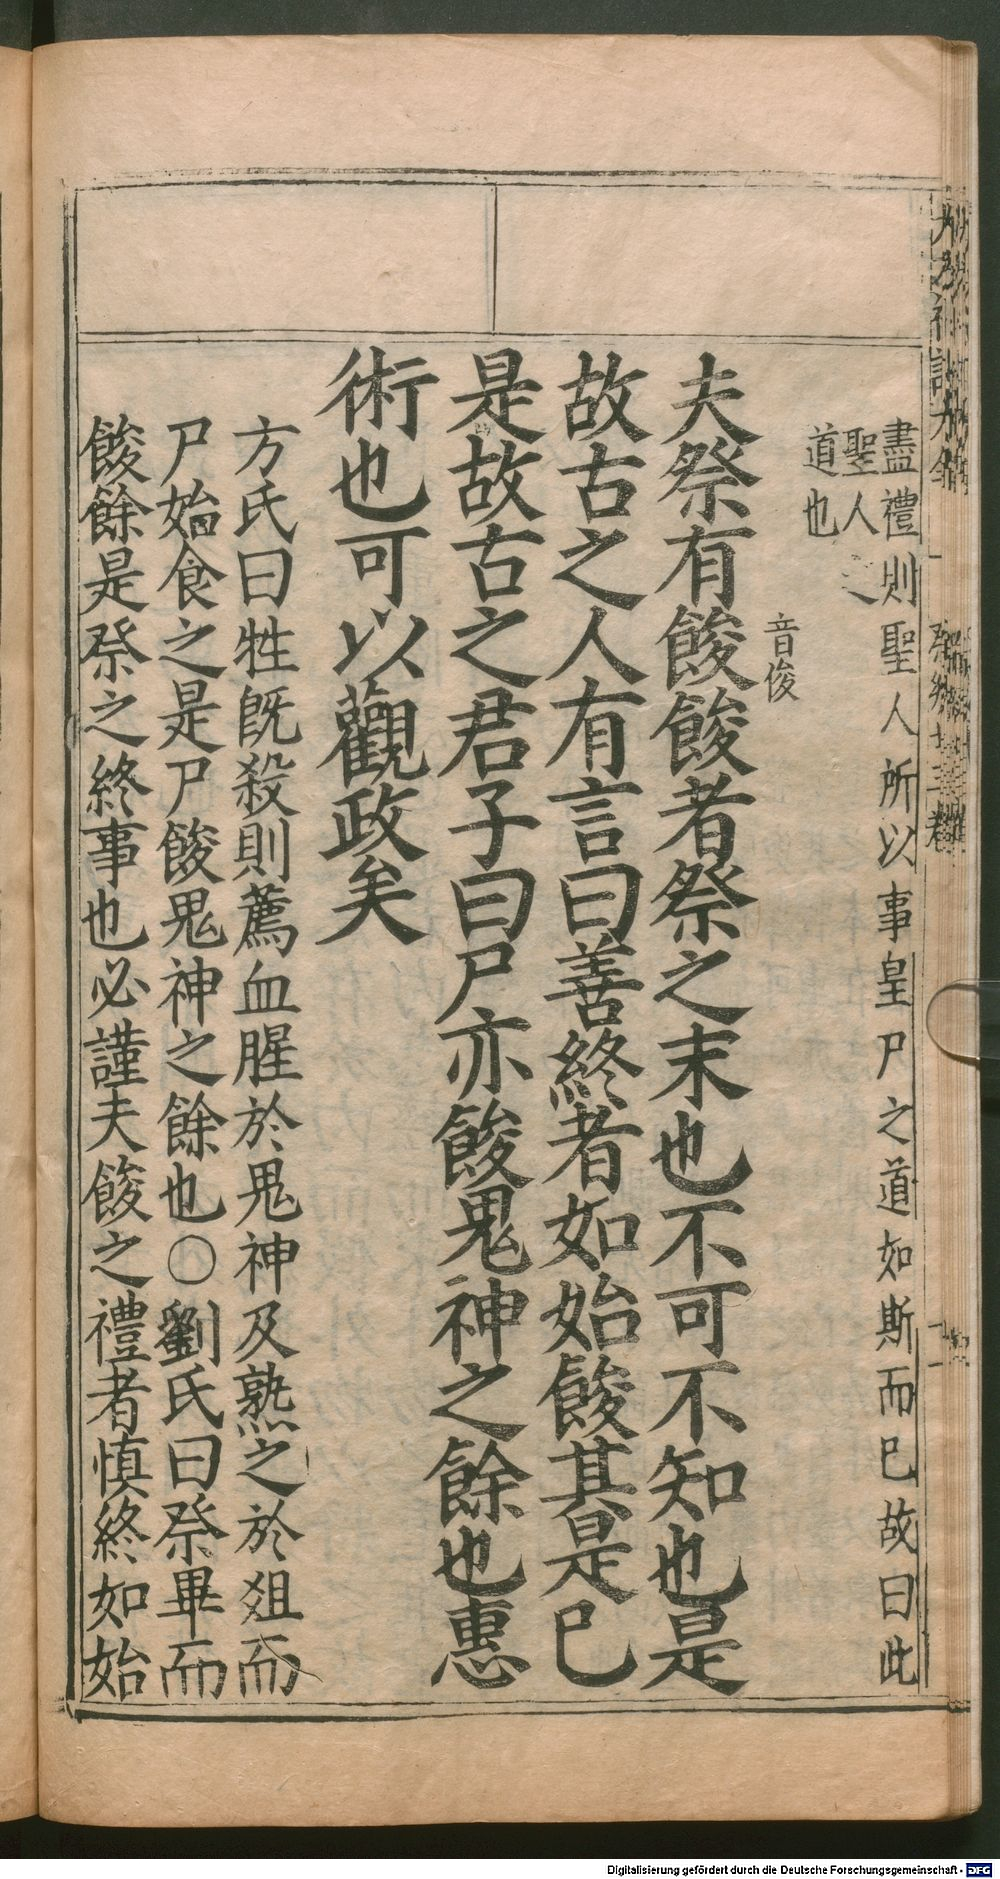 盡禮則聖人所以事皇尸之道如斯而已故曰此
聖人之
道也
夫祭有餕餕者祭之末也不可不知也是
音俊
故古之人有言曰善終者如始餕其是已
是故古之君子曰尸亦餕鬼神之餘也惠
術也可以觀政矣
方氏曰牲旣殺則薦血腥於鬼神及熟之於爼而
尸始食之是尸餕鬼神之餘也○劉氏曰祭畢而
餕餘是祭之終事也必謹夫餕之禮者慎終如始
Digitalisierung gefördert durch die Deutsche Forschungsgemeinschaft - DFG